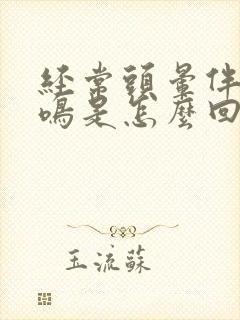 經常頭暈伴
鳴是怎麼回
玉流蘇